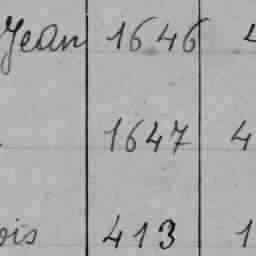 Jean 1646 4
1647 4
ois 413 1